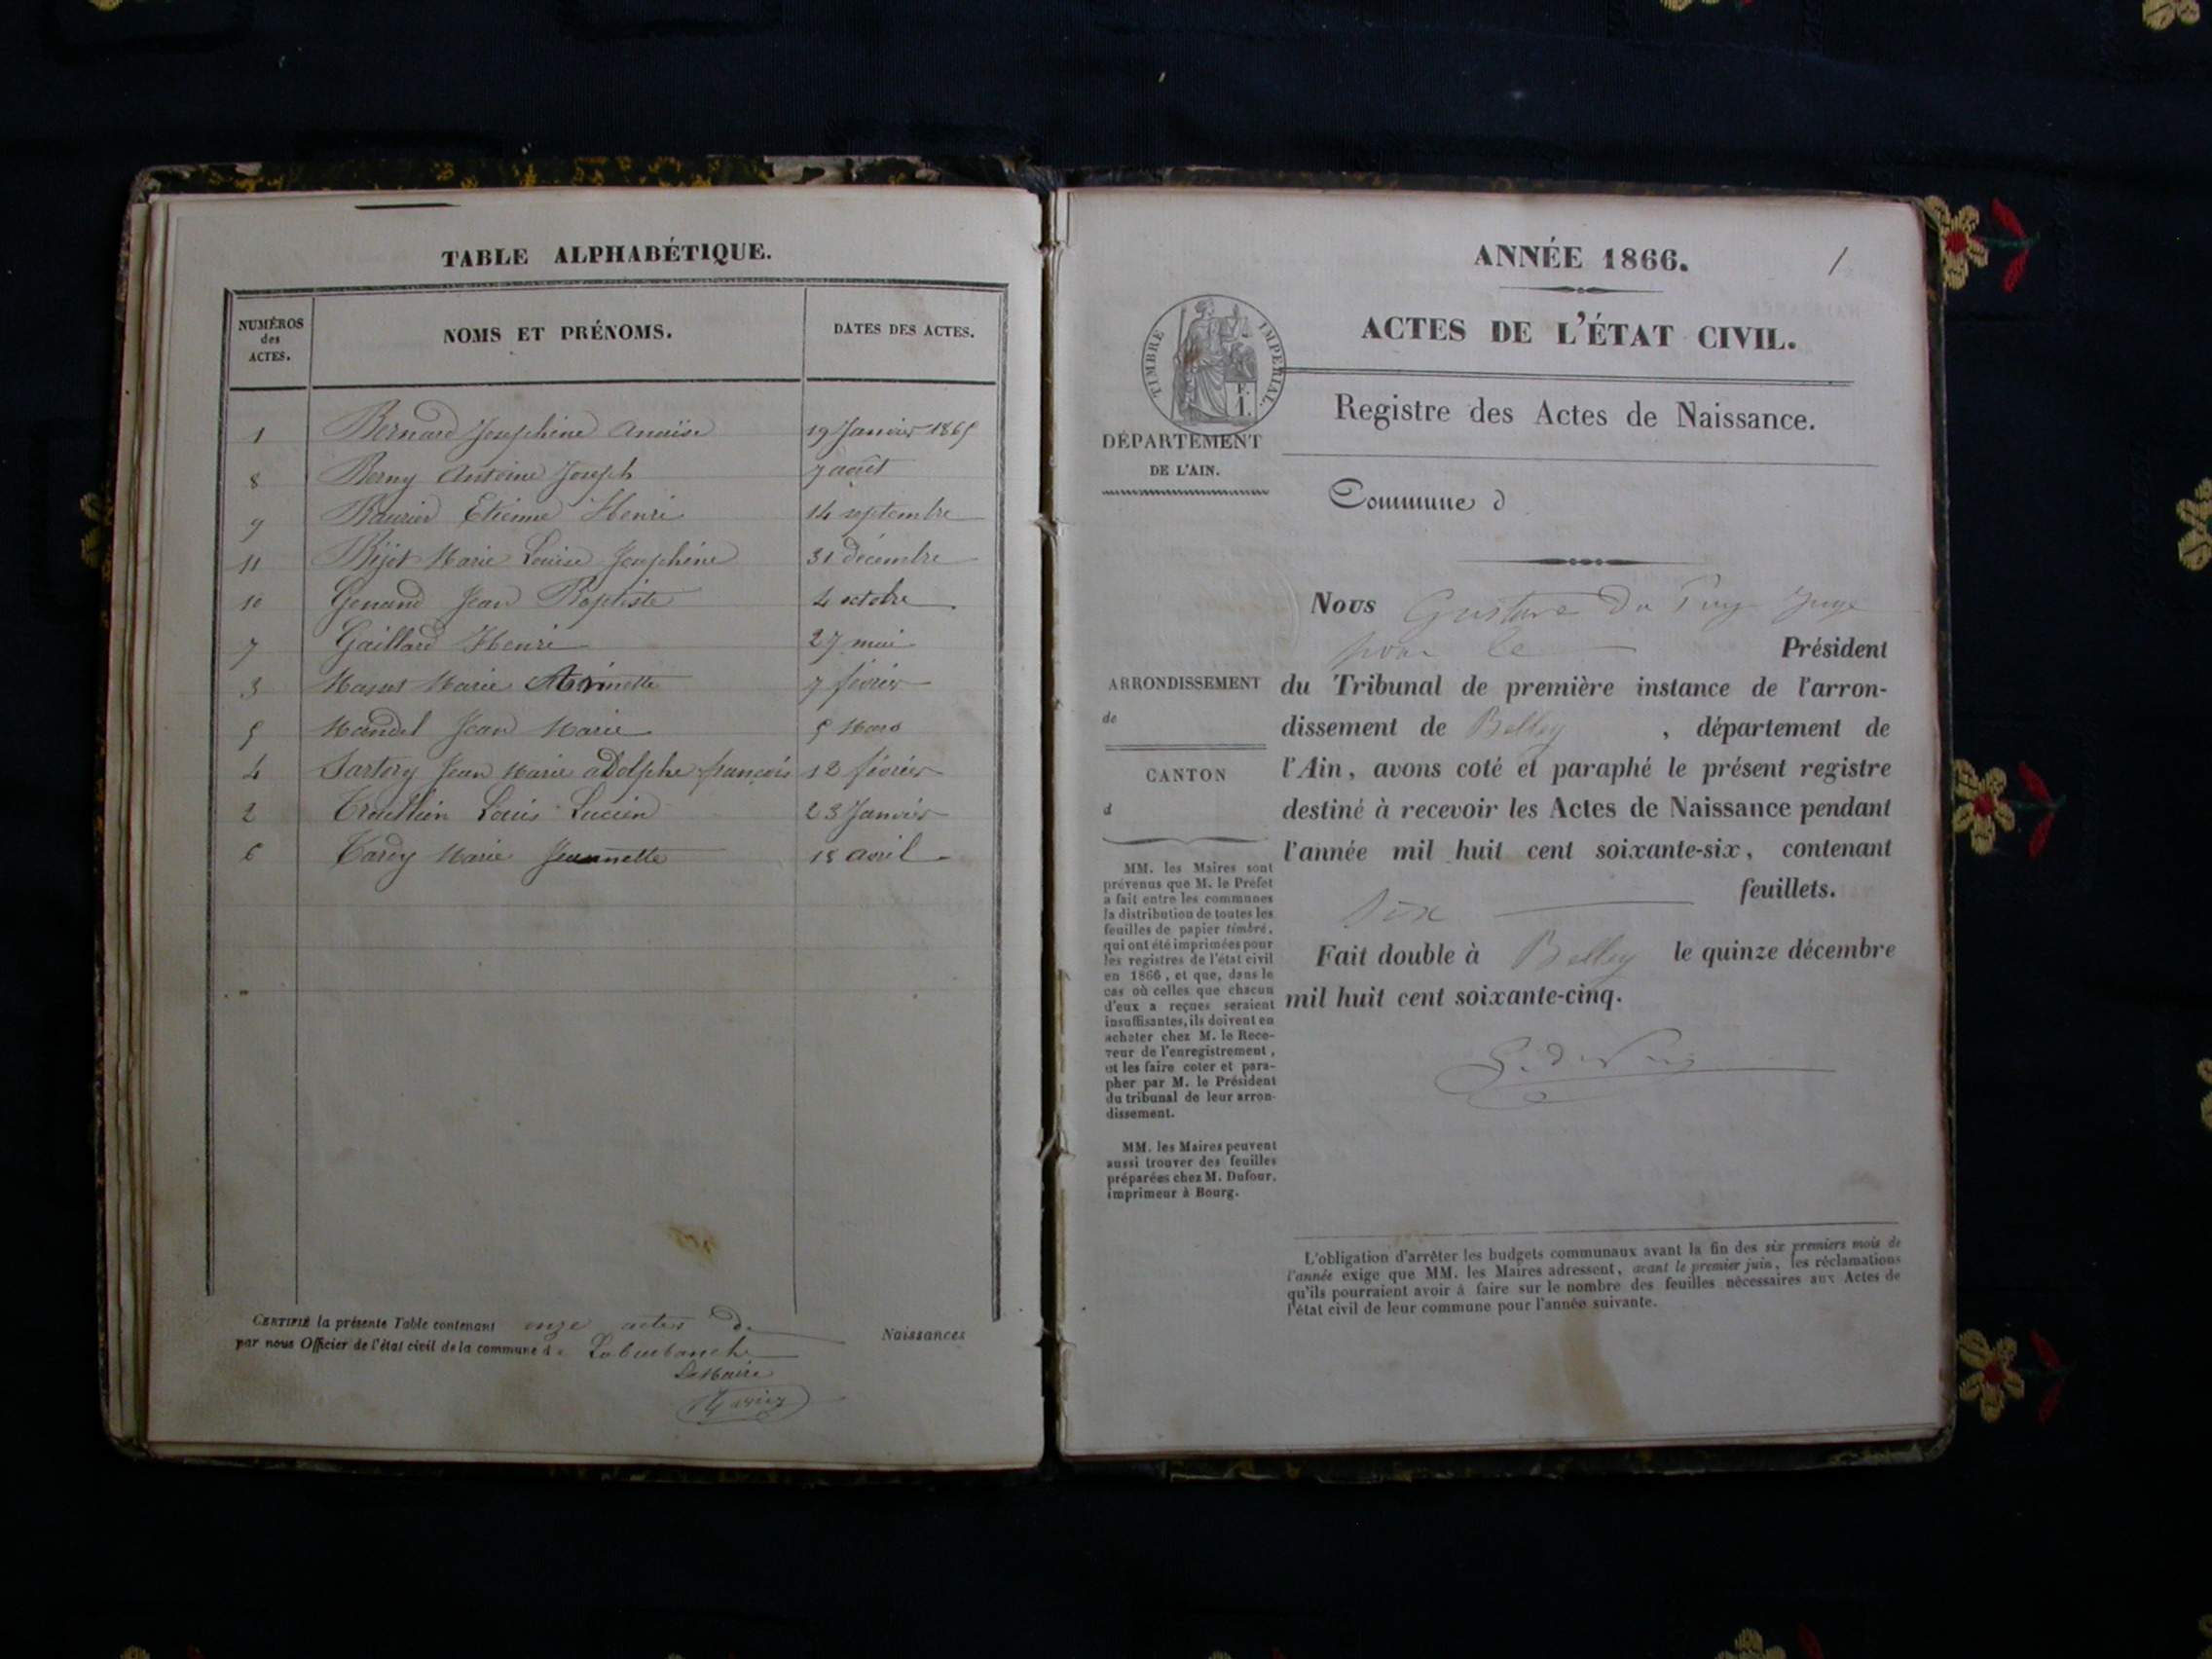 TABLE ALPHABÉTIQUE.
NUMÉROS
des
ACTES.
NOMS ET PRÉNOMS.
DATES DES ACTES.
1 Bernard Josephine Anaïse 19 Janvier 1865
8 Berny Antoine Joseph 7 août
9 Etienne Henri 14 septembre
11 Marie Louise Josephine 31 décembre
10 Genand Jean Baptiste 4 octobre
7 Gaillard Henri 27 mai
3 Marie 7 février
5 Jean Marie 5 Mars
4 Sartory Jean Marie adolphe françois 12 février
2 Louis Lucien 23 Janvier
6 Tardy Marie Jeannette 18 avril
CERTIFIÉ la présente Table contenant onze actes de Naissances
par nous Officier de l'état civil de la commune d
Le Maire
ANNÉE 1866.
1
ACTES DE L'ÉTAT CIVIL.
TIMBRE IMPÉRIAL.
F.
1.
Registre des Actes de Naissance.
DÉPARTEMENT
DE L'AIN.
Commune d
Nous Gustave Du Puy Juge
pour le Président
ARRONDISSEMENT
de
CANTON
d
du Tribunal de première instance de l'arron-
dissement de Belley , département de
l'Ain, avons coté et paraphé le présent registre
destiné à recevoir les Actes de Naissance pendant
l'année mil huit cent soixante-six, contenant
six feuillets.
Fait double à Belley le quinze décembre
mil huit cent soixante-cinq.
MM. les Maires sont
prévenus que M. le Préfet
a fait entre les communes
la distribution de toutes les
feuilles de papier timbré,
qui ont été imprimées pour
les registres de l'état civil
en 1866, et que, dans le
cas où celles que chacun
d'eux a reçues seraient
insuffisantes, ils doivent en
acheter chez M. le Rece-
veur de l'enregistrement,
et les faire coter et para-
pher par M. le Président
du tribunal de leur arron-
dissement.
MM. les Maires peuvent
aussi trouver des feuilles
préparées chez M. Dufour,
imprimeur à Bourg.
L'obligation d'arrêter les budgets communaux avant la fin des six premiers mois de
l'année exige que MM. les Maires adressent, avant le premier juin, les réclamations
qu'ils pourraient avoir à faire sur le nombre des feuilles nécessaires aux Actes de
l'état civil de leur commune pour l'année suivante.